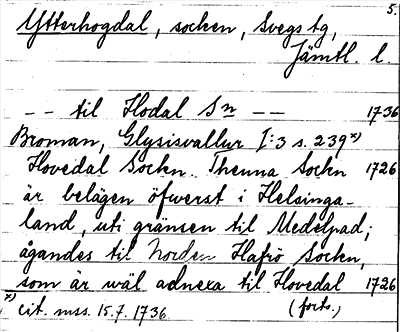 5.
Ytterhogdal, socken, Svegs tg,
Jämtl. l.
-- til Hodal Sn -- 1736
Broman, Glysisvallur I:3 s. 239 x)
Hovedal Sockn. Thenna Sockn 1726
är belägen öfwerst i Helsinga-
land, uti gränsen til Medelpad;
ågandes til Norden Hafrö Sockn,
som är wäl adnexa til Hovedal 1726
x) cit. mss. 15.7. 1736. (forts.)